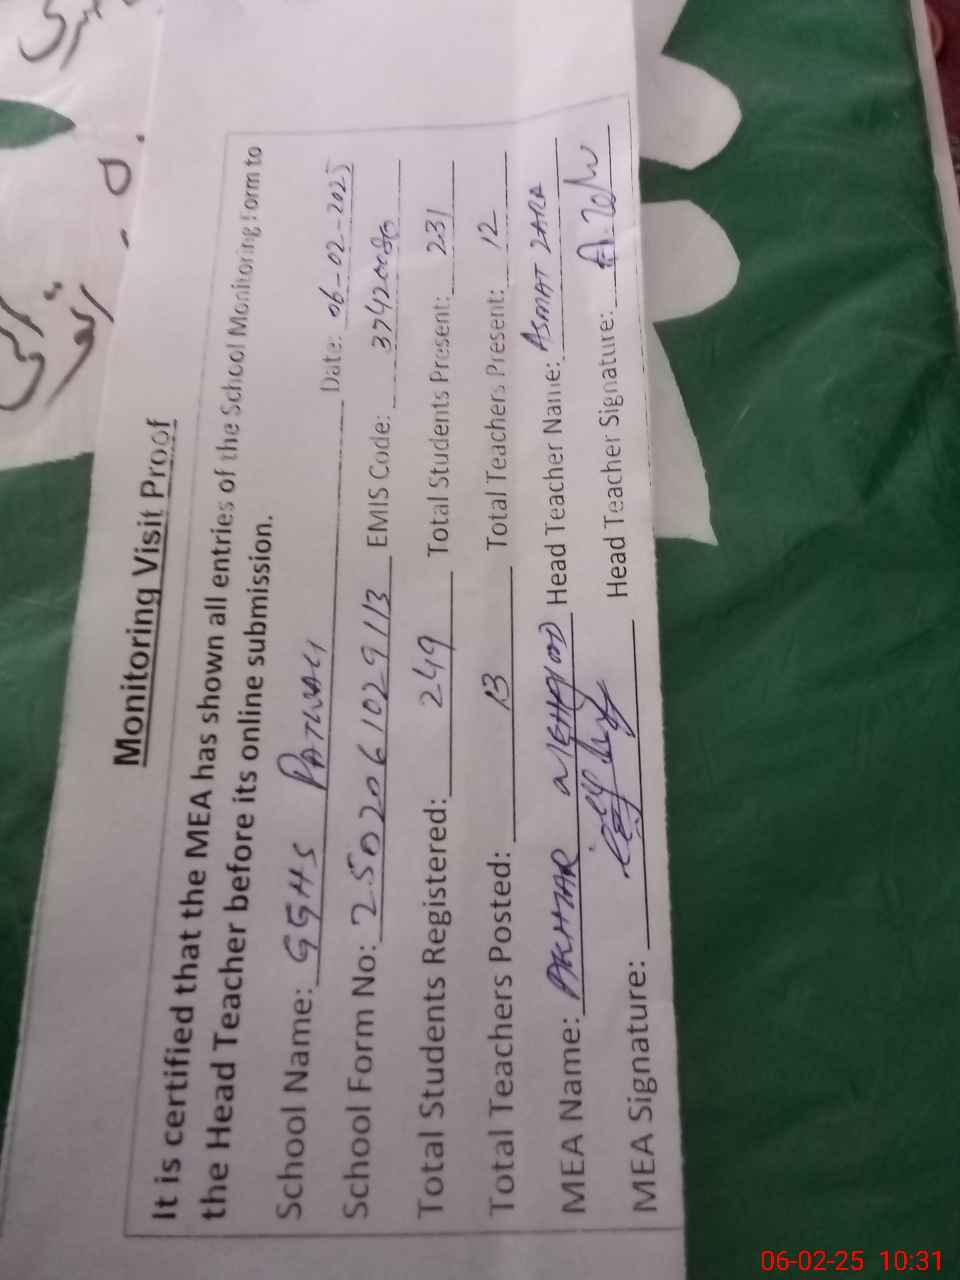 Monitoring Visit Proof
It is certified that the MEA has shown all entries of the School Monitoring Form to
the Head Teacher before its online submission.
School Name: GGHS PATWALI Date: 06-02-2025
School Form No: 2502061029113 EMIS Code: 37420080
Total Students Registered: 249 Total Students Present: 231
Total Teachers Posted: 13 Total Teachers Present: 12
MEA Name: AKHTAR MEHMOOD Head Teacher Name: ASMAT ZARA
MEA Signature: Head Teacher Signature:
06-02-25 10:31